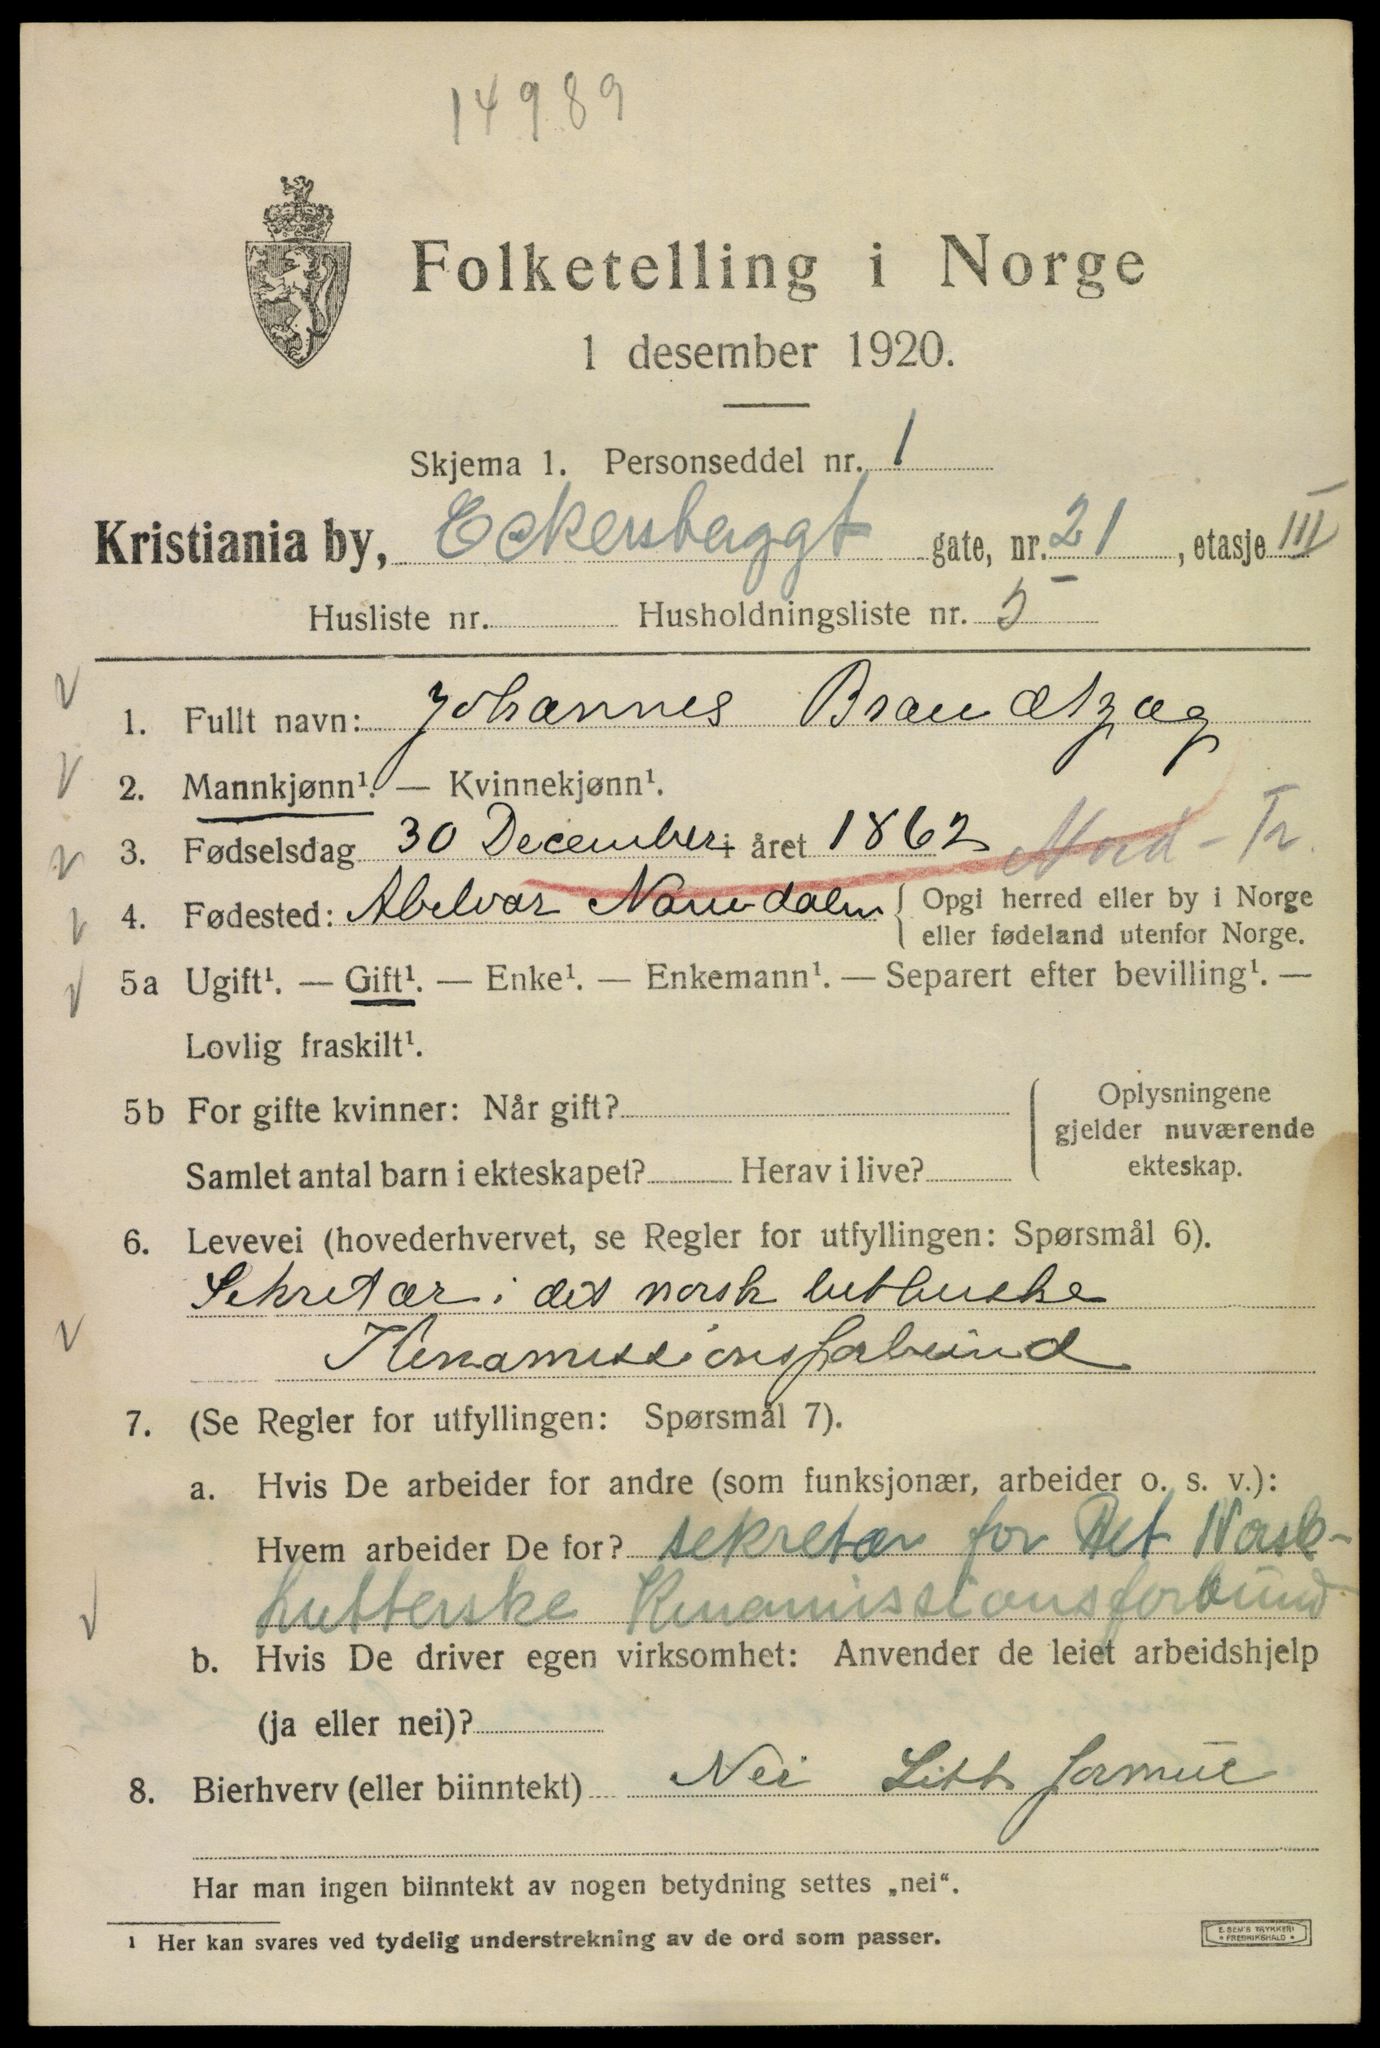 14989
Folketelling i Norge
1 desember 1920.
Skjema 1. Personseddel nr. 1
Kristiania by, Eckersberggt gate, nr. 21, etasje III
Husliste nr. Husholdningsliste nr. 5
1. Fullt navn: Johannes Brandtzæg
2. Mannkjønn¹. — Kvinnekjønn¹.
3. Fødselsdag 30 December i året 1862 Nord-Tr.
4. Fødested: Abelvær Namdalen { Opgi herred eller by i Norge
eller fødeland utenfor Norge.
5a Ugift¹. — Gift¹. — Enke¹. — Enkemann¹. — Separert efter bevilling¹. —
Lovlig fraskilt¹.
5b For gifte kvinner: Når gift? Oplysningene
gjelder nuværende
Samlet antal barn i ekteskapet? Herav i live? ekteskap.
6. Levevei (hovederhvervet, se Regler for utfyllingen: Spørsmål 6).
Sekretær i det norsk lutherske
Kinamissionsforbund
7. (Se Regler for utfyllingen: Spørsmål 7).
a. Hvis De arbeider for andre (som funksjonær, arbeider o. s. v.):
Hvem arbeider De for? sekretær for Det Norsk-
Lutterske Kinamissionsforbund
b. Hvis De driver egen virksomhet: Anvender de leiet arbeidshjelp
(ja eller nei)?
8. Bierhverv (eller biinntekt) Nei Litt formue
Har man ingen biinntekt av nogen betydning settes „nei“.
¹ Her kan svares ved tydelig understrekning av de ord som passer.
E. SEM'S TRYKKERI
* FREDRIKSHALD *